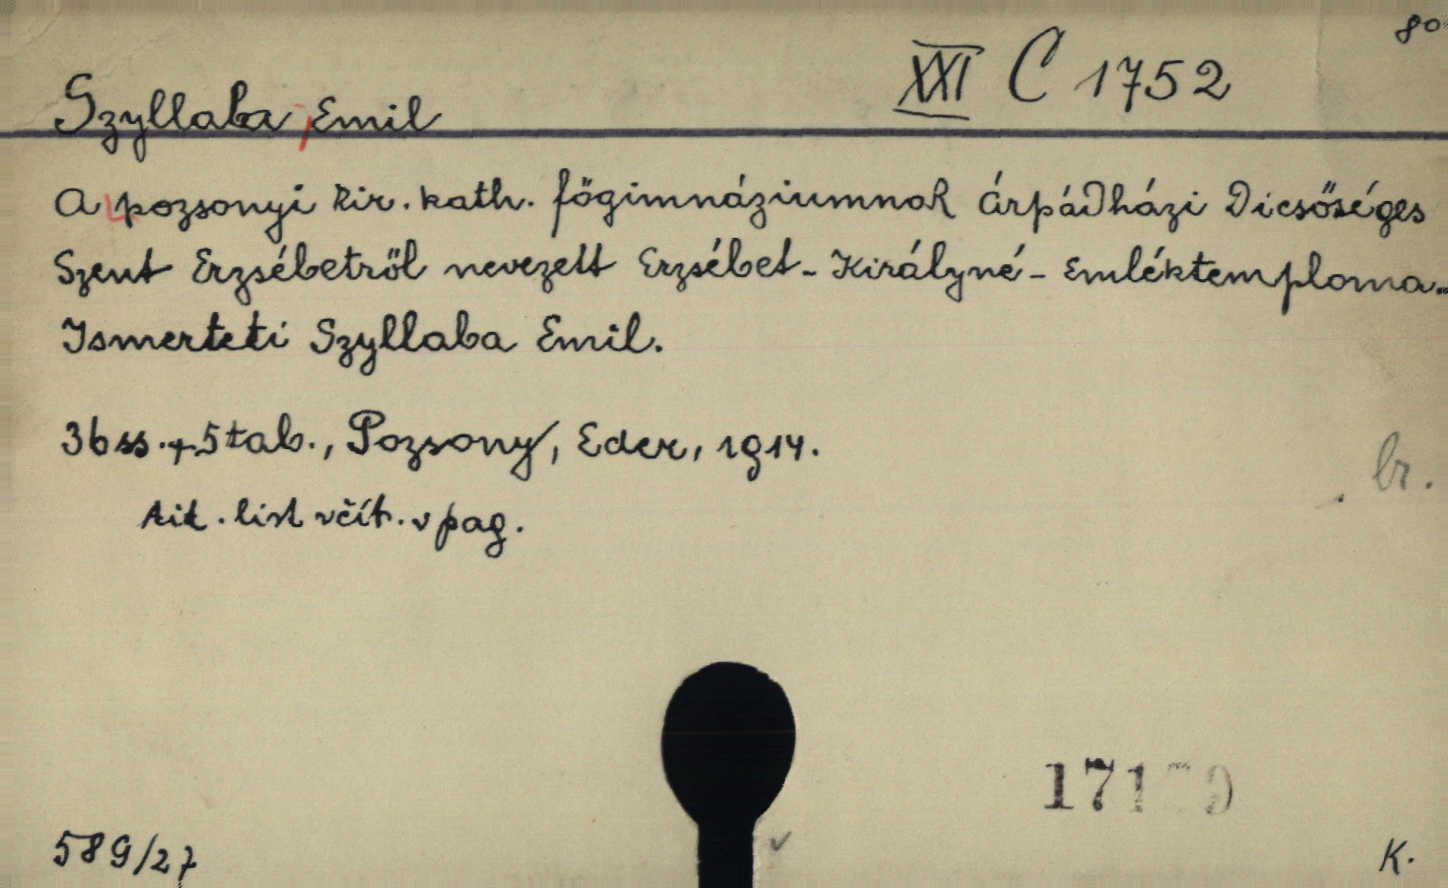 8°
XXI C 1752
Szyllaba, Emil
A pozsonyi kir. kath. főgimnáziumnak Árpádházi Dicsőséges
Szent Erzsébetről nevezett Erzsébet-Királyné-Emléktemploma.
Ismerteti Szyllaba Emil.
36 ss. + 5 tab., Pozsony, Eder, 1914.
br.
tit. list včít. v pag.
589/27
K.